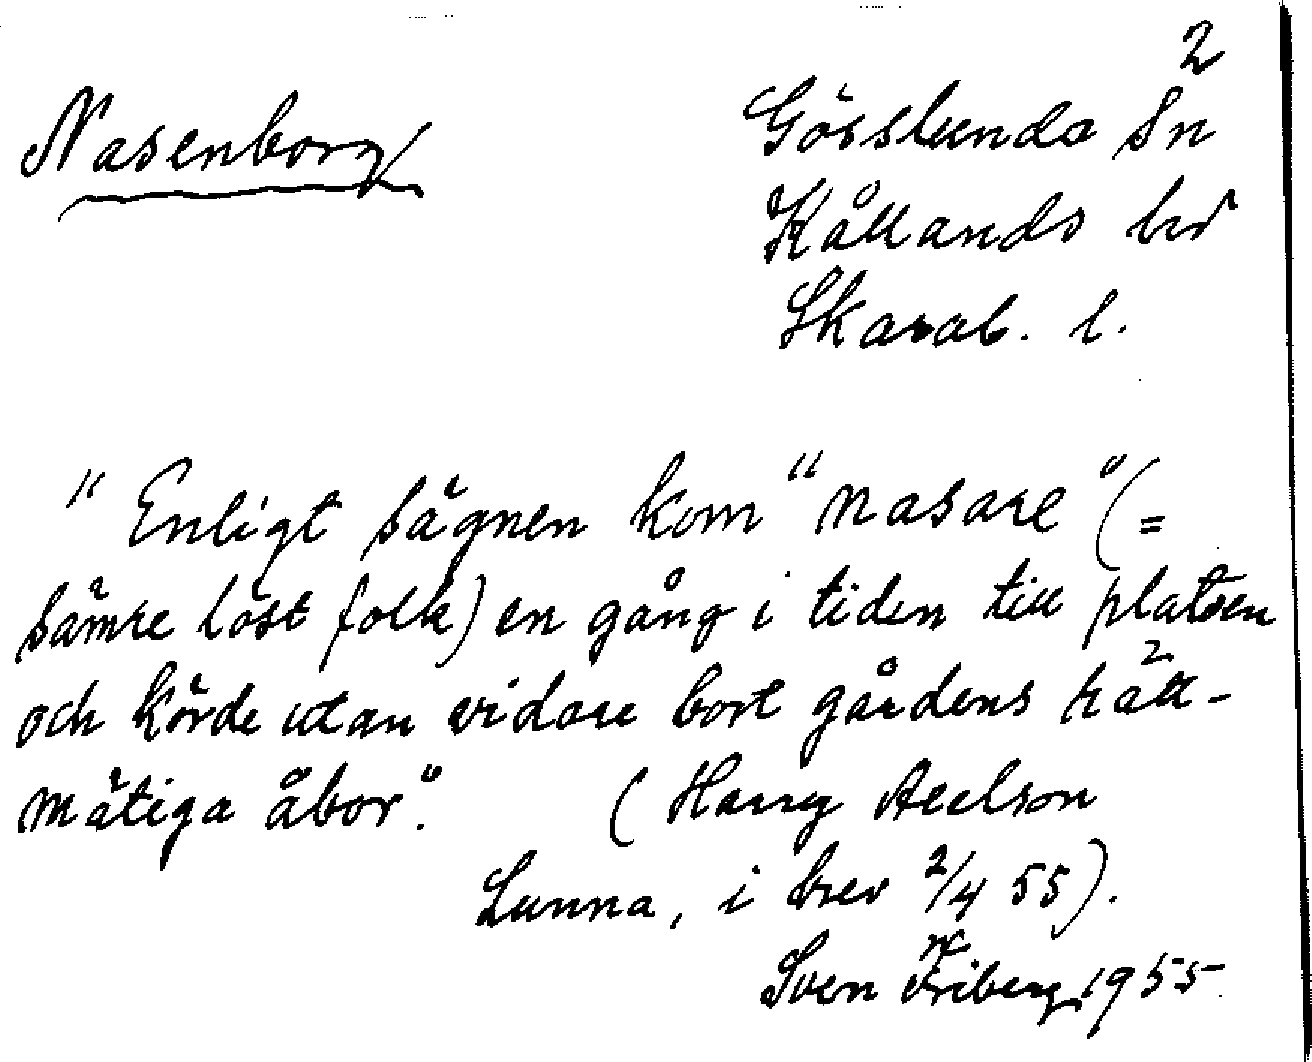 2
Nasenborg
Gösslunda Sn
Kållands hd
Skarab. l.
"Enligt sägnen kom "nasare" (=
sämre löst folk) en gång i tiden till platsen
och körde utan vidare bort gårdens rätt-
mätiga åbor".
(Harry Axelson
Lunna, i brev 2/4 55).
Sven Friberg 1955